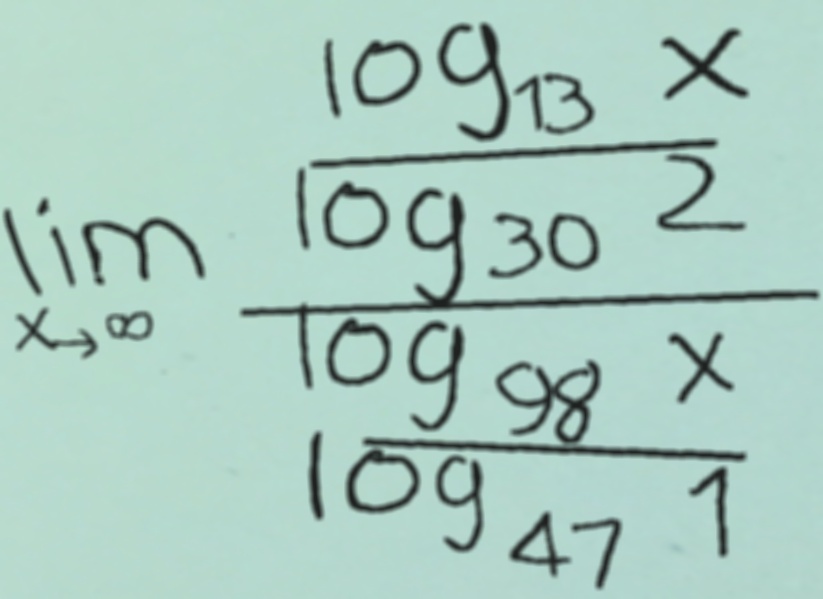 lim x→∞
log₁₃ x
log₃₀ 2
log₉₈ x
log₄₇ 1